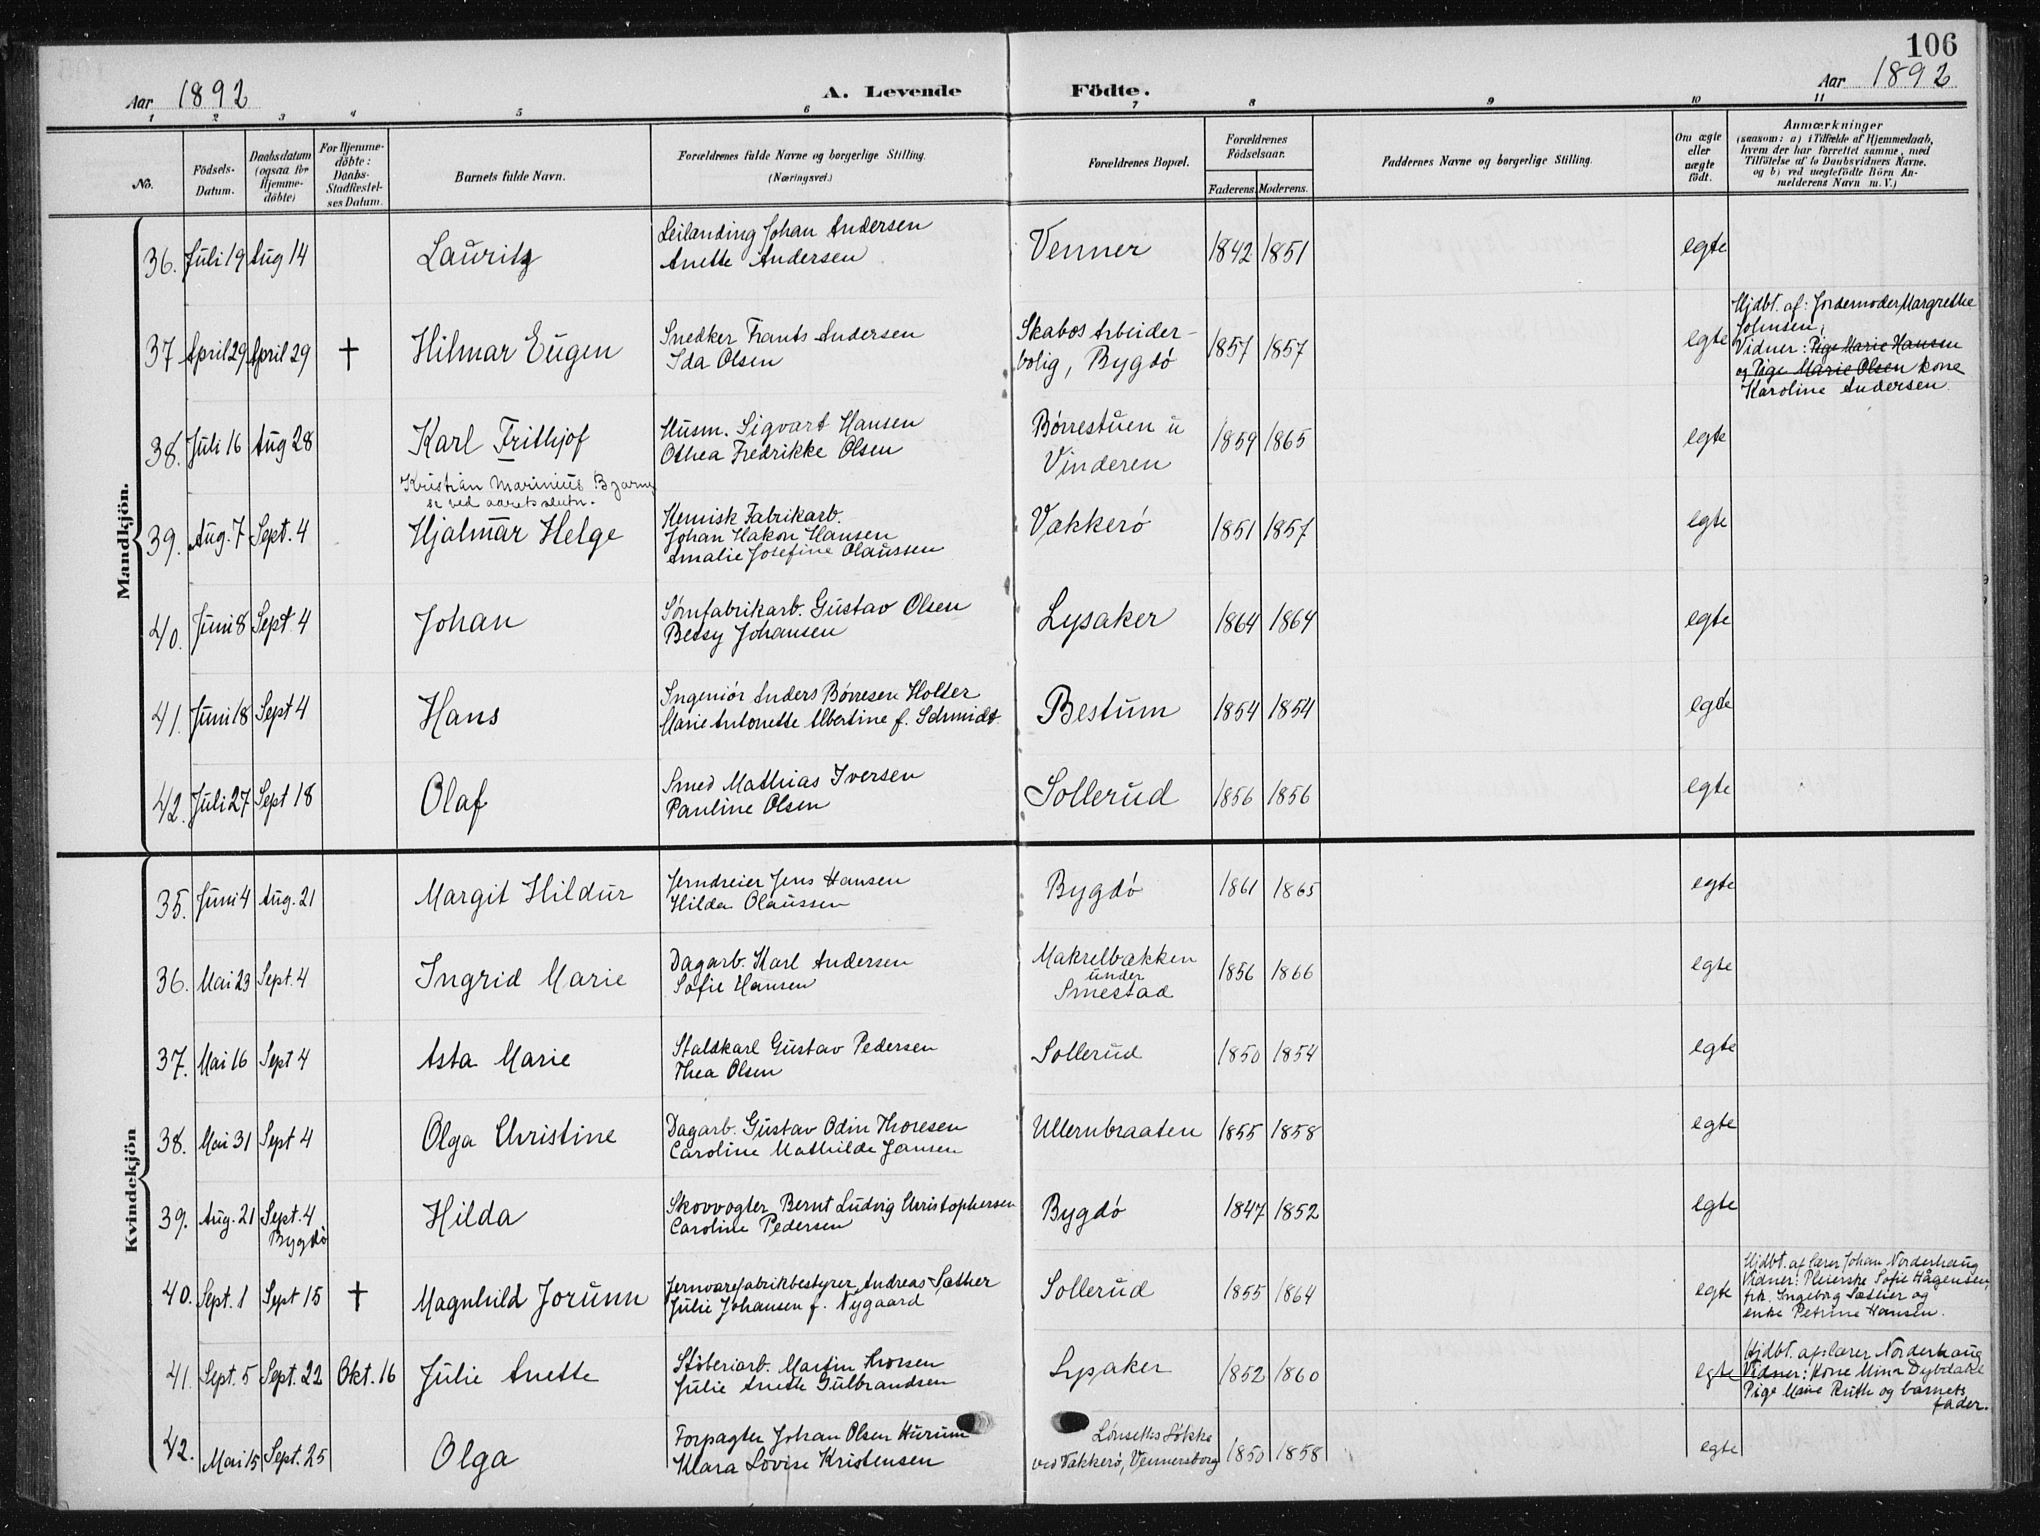 106
Aar 1892
A. Levende Födte.
Aar 1892
1 2 3 4 5 6 7 8 9 10 11
No.
Födsels-Datum.
Daabsdatum (ogsaa for Hjemme-döbte)
For Hjemme-döbte: Daabs-Stadfæstel-ses Datum.
Barnets fulde Navn.
Forældrenes fulde Navne og borgerlige Stilling. (Næringsvei.)
Forældrenes Bopæl.
Forældrenes Födselsaar.
Faderens. Moderens.
Faddernes Navne og borgerlige Stilling.
Om ægte eller uægte födt.
Anmærkninger
(saasom: a) i Tilfælde af Hjemmedaab,
hvem der har forrettet samme, med
Tilföielse af to Daabsvidners Navne.
og b) ved uægtefödte Börn An-
melderens Navn m. V.)
Mandkjön.
36. Juli 19 Aug 14 Lauritz Leilending Johan Andersen Venner 1842 1851 egte
Anette Andersen
37 April 29 April 29 † Hilmar Eugen Snedker Frants Andersen Skabos Arbeider- 1857 1857 egte
Ida Olsen bolig, Bygdö
Hjdbt. af: Jordemoder Margrethe
Johnsen,
Vidner: Pige Marie Hansen
og Pige Marie Olsen kone
Karoline Andersen.
38. Juli 16 Aug 28 Karl Frithjof Husm. Sigvart Hansen Børrestuen u 1859 1865 egte
Othea Fredrikke Olsen Vinderen
Kristian Marinius Bjarne
se ved aarets slutn.
39. Aug. 7 Sept. 4 Hjalmar Helge Kemisk Fabrikarb. Vækkerø 1851 1857 egte
Johan Hakon Hansen
Amalie Josefine Olaussen
40. Juni 8 Sept 4 Johan Sømfabrikarb. Gustav Olsen Lysaker 1864 1864 egte
Betsy Johansen
41. Juni 18 Sept 4 Hans Ingeniør Anders Børresen Holter Bestum 1854 1854 egte
Marie Antonette Albertine f. Schmidt
42. Juli 27 Sept 18 Olaf Smed Mathias Iversen Sollerud 1856 1856 egte
Pauline Olsen
Kvindekjön
35. Juni 4 Aug. 21 Margit Hildur Jerndreier Jens Hansen Bygdö 1861 1865 egte
Hilda Olaussen
36. Mai 23 Sept. 4 Ingrid Marie Dagarb. Karl Andersen Makrelbækken 1856 1866 egte
Sofie Hansen under
Smestad
37. Mai 16 Sept 4 Asta Marie Staldkarl Gustav Pedersen Sollerud 1850 1854 egte
Thea Olsen
38. Mai 31 Sept 4 Olga Christine Dagarb. Gustav Odin Thoresen Ullernbraaten 1855 1858 egte
Caroline Mathilde Jansen
39. Aug. 21 Sept. 4 Hilda Skovvogter Bernt Ludvig Christophersen Bygdö 1847 1852 egte
Bygdö Caroline Pedersen
40. Sept. 1 Sept 15 † Magnhild Jorunn Jernvarefabrikbestyrer Andreas Sæther Sollerud 1855 1864 egte
Julie Johansen f. Nygaard
Hjdbt. af lærer Johan Norderhaug
Vidner: Pleierske Sofie Hågensen,
frk. Ingeborg Sæther og
enke Petrine Hansen.
41. Sept. 5 Sept. 22 Okt. 16 Julie Anette Støberiarb. Martin Thorsen Lysaker 1852 1860 egte
Julie Anette Gulbrandsen
Hjdbt. af lærer Norderhaug
Vidner: Kone Mina Dybdahl
Pige Marie Ruth og barnets
fader.
42. Mai 15 Sept. 25 Olga Forpagter Johan Olsen Hurum Løkke 1850 1858 egte
Klara Lovise Kristensen ved Vækkerø, Vennersborg